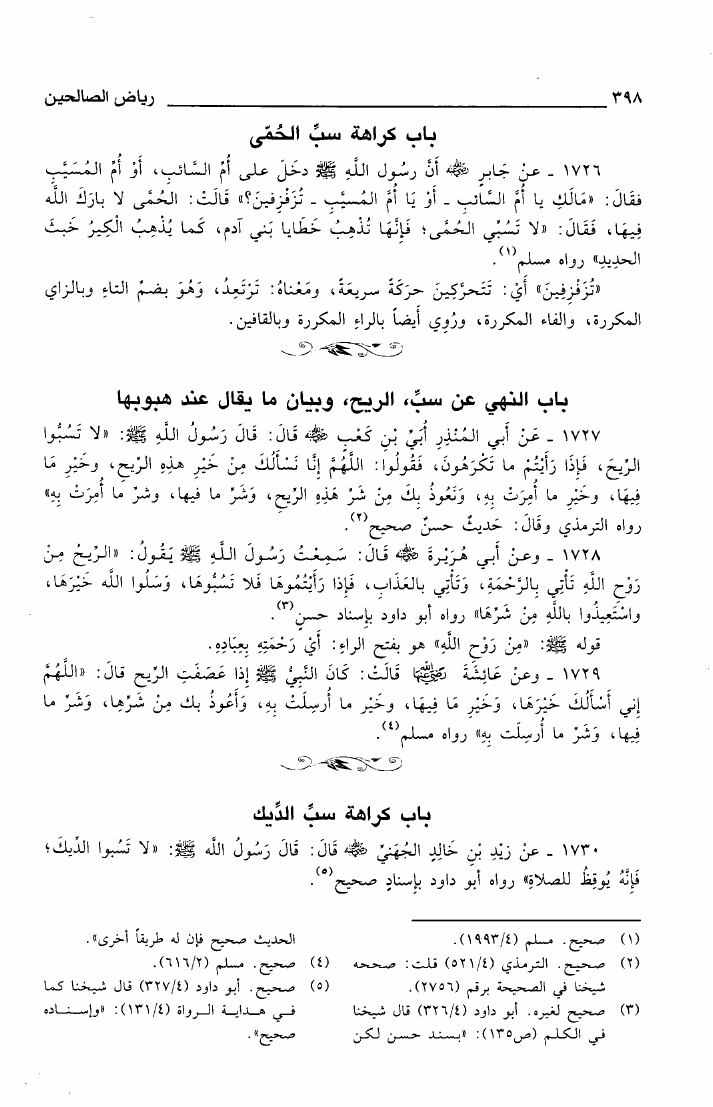 ٣٩٨ رياض الصالحين
باب كراهة سبِّ الحُمّى
١٧٢٦ ـ عنْ جَابرٍ ﷺ أنَّ رسُول اللَّهِ ﷺ دخَلَ على أُمِّ السَّائبِ، أَوْ أُمِّ المُسَيَّبِ
فقَالَ: «مَالَكِ يا أُمَّ السَّائبِ ـ أَوْ يَا أُمَّ المُسيَّبِ ـ تُزَفْزِفينَ؟» قَالَتْ: الحُمَّى لا بارَكَ اللَّه
فِيهَا، فَقَالَ: «لا تَسُبِّي الحُمَّى؛ فَإِنَّهَا تُذْهِبُ خَطَايا بَني آدم، كَما يُذْهِبُ الْكِيرُ خَبثَ
الحدِيدِ» رواه مسلم(١).
«تُزَفْزِفِينَ» أيْ: تَتَحرَّكِينَ حرَكَةً سريعَةً، ومَعْنَاهُ: تَرْتَعِدُ، وَهُوَ بضمِّ التاءِ وبالزاي
المكررة، والفاء المكررة، ورُوِي أيضاً بالراءِ المكررة وبالقافينِ.
باب النهي عن سبِّ، الريح، وبيان ما يقال عند هبوبها
١٧٢٧ ـ عَنْ أبي المُنْذِرِ أُبَيِّ بْنِ كَعْبٍ رضي الله عنه قَالَ: قَالَ رَسُولُ اللَّهِ ﷺ: «لا تَسُبُّوا
الرِّيحَ، فَإِذَا رَأَيْتُمْ ما تَكْرَهُونَ، فَقُولُوا: اللَّهُمَّ إِنَّا نَسْأَلُكَ مِنْ خَيْرِ هذِهِ الرِّيحِ، وخَيْرِ مَا
فِيهَا، وخَيْرِ ما أُمِرَتْ بِهِ، وَنَعُوذُ بِكَ مِنْ شَرِّ هَذِهِ الرِّيحِ، وَشَرِّ ما فيها، وشرِّ ما أُمِرَتْ بِهِ»
رواه الترمذي وقَالَ: حَديثٌ حسنٌ صحيح(٢).
١٧٢٨ ـ وعنْ أبي هُرَيْرةَ رضي الله عنه قَالَ: سَمِعْتُ رَسُولَ اللَّهِ ﷺ يَقُولُ: «الرِّيحُ مِنْ
رَوْحِ اللَّهِ تَأْتِي بِالرَّحْمَةِ، وَتَأْتِي بالعَذَابِ، فَإِذا رَأَيْتُمُوهَا فَلا تَسُبُّوهَا، وَسَلُوا اللَّه خَيْرَهَا،
واسْتَعِيذُوا باللَّهِ مِنْ شَرِّهَا» رواه أبو داود بإسناد حسنٍ(٣).
قوله ﷺ: «مِنْ رَوْحِ اللَّهِ» هو بفتح الراءِ: أيْ رَحْمَتِهِ بِعِبَادِهِ.
١٧٢٩ ـ وعنْ عَائِشَةَ رضي الله عنها قَالَتْ: كَانَ النَّبيُّ ﷺ إذا عَصَفَتِ الرِّيح قالَ: «اللَّهُمَّ
إني أَسْأَلُكَ خَيْرَهَا، وَخَيْرِ مَا فِيهَا، وخَيْر ما أُرسِلَتْ بِهِ، وَأَعُوذُ بك مِنْ شَرِّهِا، وَشَرِّ ما
فِيها، وَشَرِّ ما أُرسِلَت بِهِ» رواه مسلم(٤).
باب كراهة سبِّ الدِّيك
١٧٣٠ ـ عنْ زيْدِ بْنِ خَالِدٍ الجُهَنيِّ رضي الله عنه قَالَ: قَالَ رَسُولُ اللَّه ﷺ: «لا تَسُبوا الدِّيكَ؛
فَإِنَّهُ يُوقِظُ للصلاةِ» رواه أبو داود بإسنادٍ صحيح(٥).
(١) صحيح. مسلم (٤/١٩٩٣).
(٢) صحيح. الترمذي (٤/٥٢١) قلت: صححه
شيخنا في الصحيحة برقم (٢٧٥٦).
(٣) صحيح لغيره. أبو داود (٤/٣٢٦) قال شيخنا
في الكلم (ص١٣٥): «بسند حسن لكن
الحديث صحيح فإن له طريقاً أخرى».
(٤) صحيح. مسلم (٢/٦١٦).
(٥) صحيح. أبو داود (٤/٣٢٧) قال شيخنا كما
في هداية الرواة (٤/١٣١): «وإسناده
صحيح».